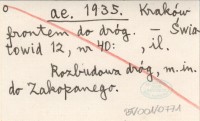 o ae. 1935. Kraków
frontem do dróg. — Świa-
towid 12, nr 40: , il.
Rozbudowa dróg, m.in.
do Zakopanego.